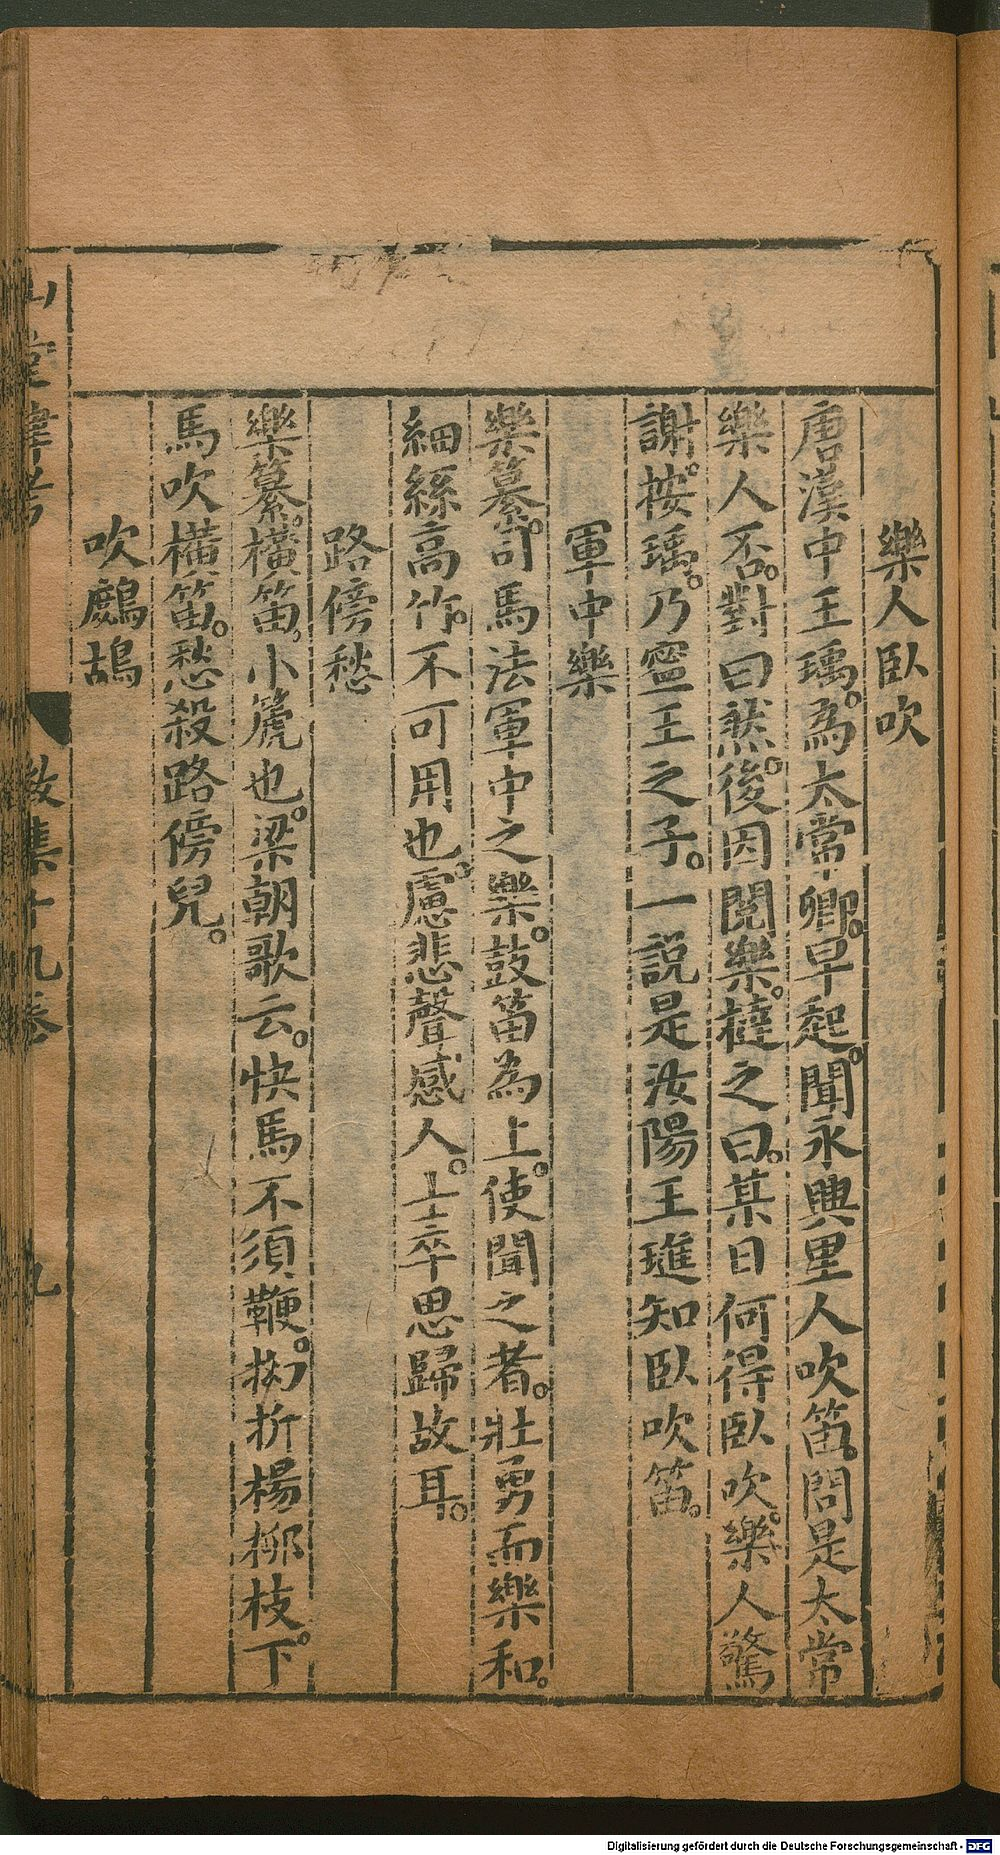 樂人臥吹
唐漢中王瑀。爲太常卿。早起。聞永興里人吹笛。問是太常
樂人否。對曰然。後因閱樂。撻之曰。某日何得臥吹。樂人驚
謝。按瑀。乃寧王之子。一說是汝陽王璡知臥吹笛。
軍中樂
樂纂。司馬法軍中之樂。鼓笛為上。使聞之者。壯勇而樂和。
細絲高竹。不可用也。慮悲聲感人。士卒思歸故耳。
路傍愁
樂纂。橫笛。小篪也。梁朝歌云。快馬不須鞭。拗折楊柳枝。下
馬吹橫笛。愁殺路傍兒。
吹鷓鴣
山堂肆考 徵集十九卷 九
Digitalisierung gefördert durch die Deutsche Forschungsgemeinschaft - DFG